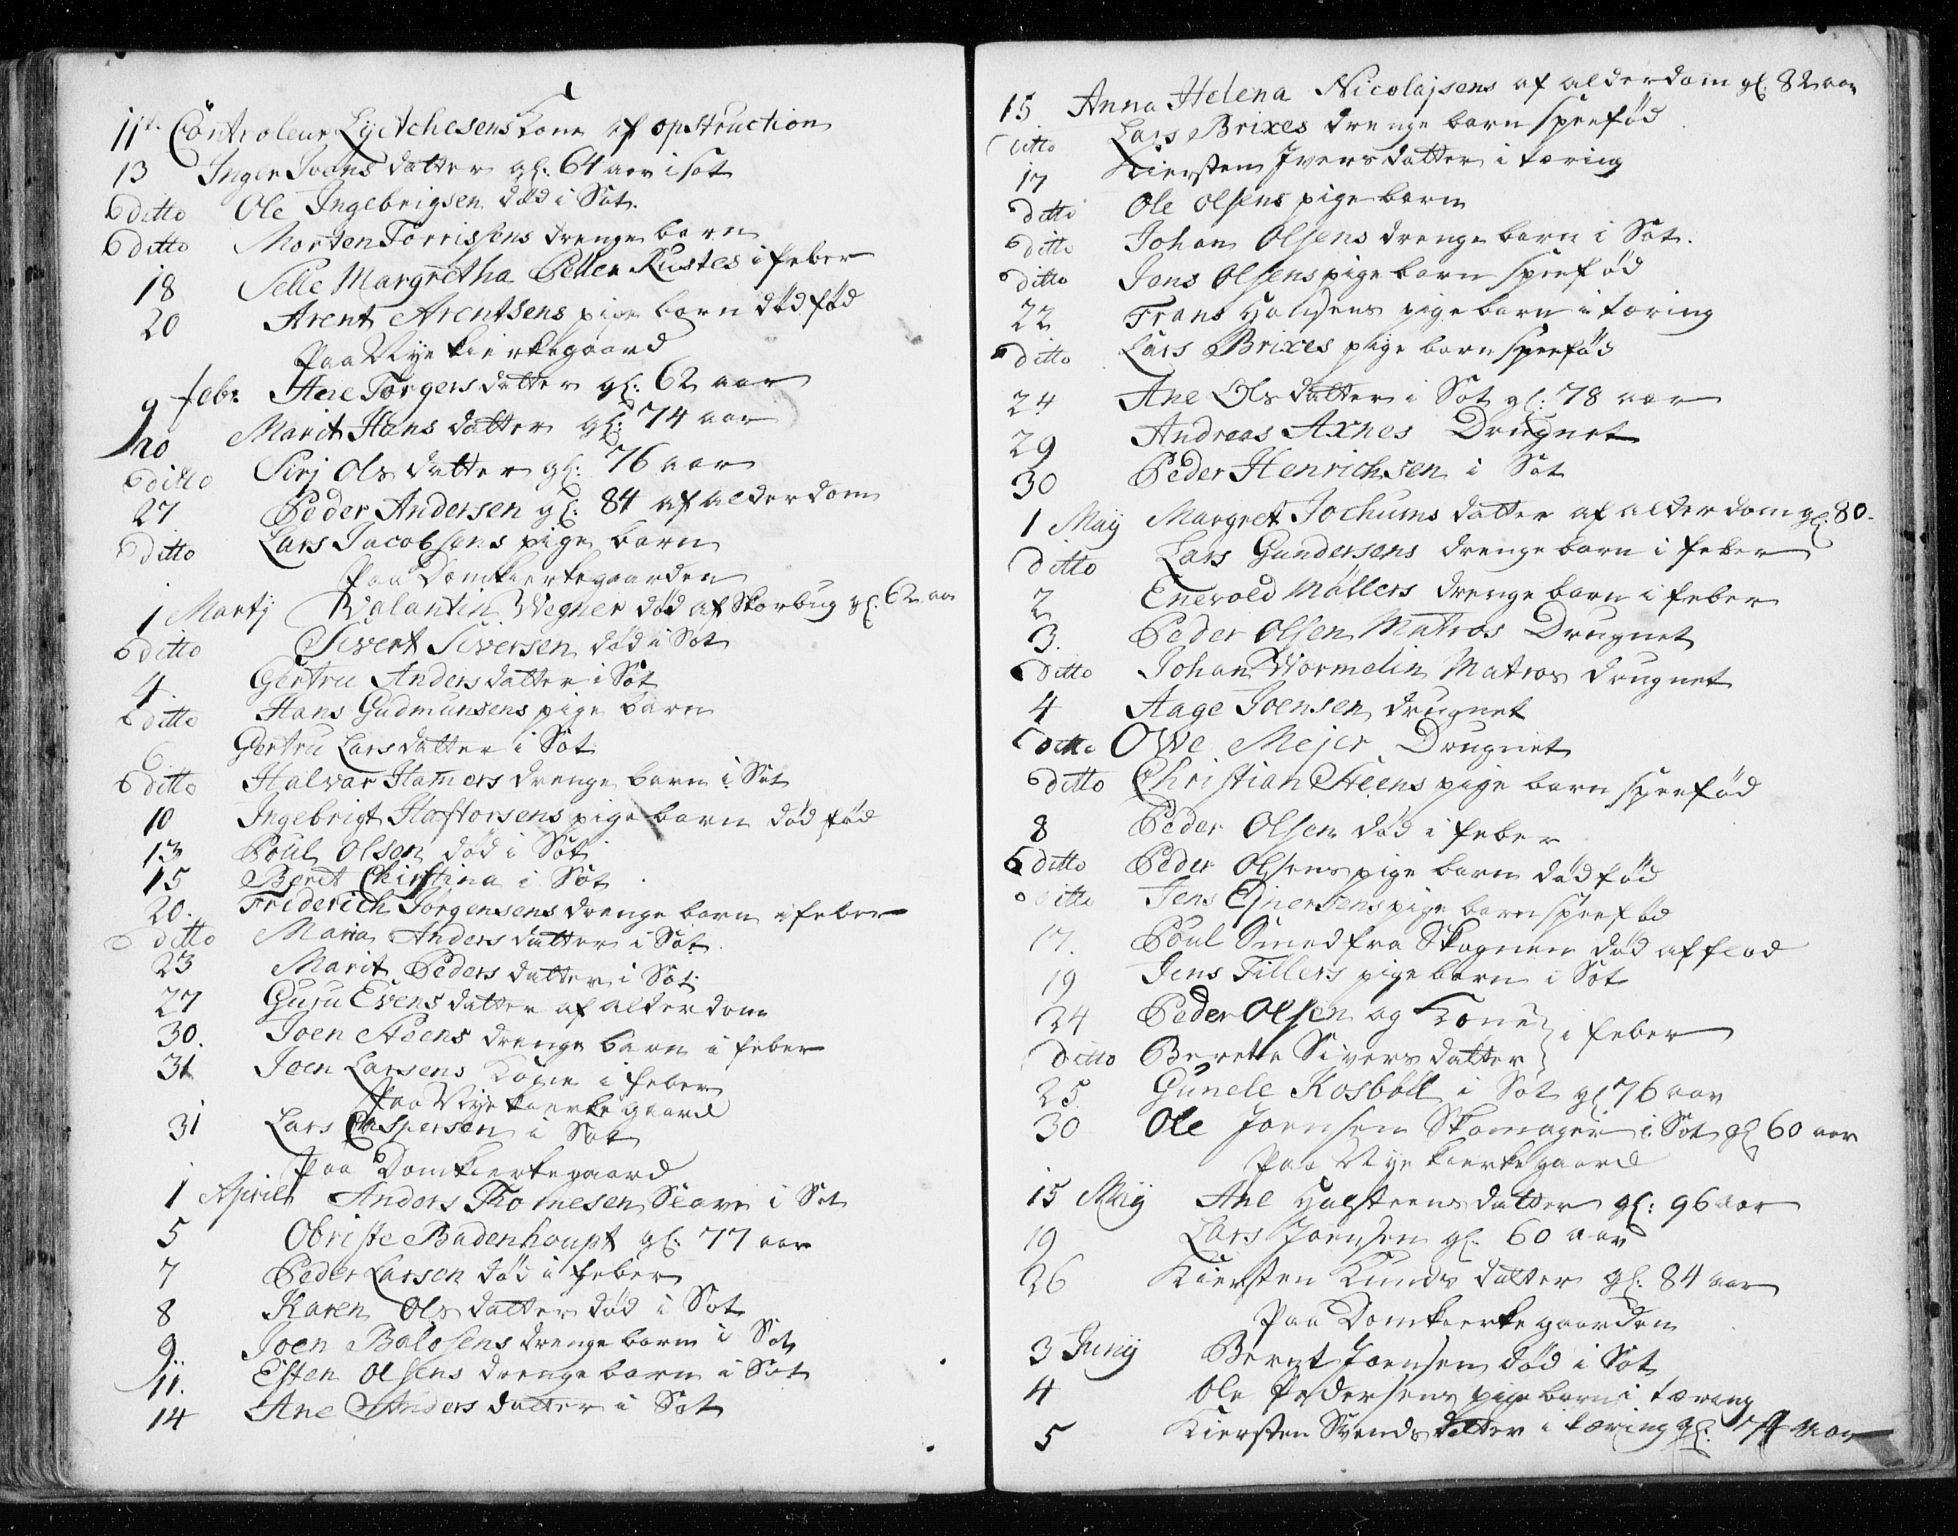 11te Controleur Lyctchesens Kone af opstruction
13 Inger Ivers datter gl: 64 aar i sot
ditto Ole Ingebrigsen død i Sot.
ditto Morten Torrissens drenge barn
18 Selle Margretha Peller Kustes i feber
20 Arent Arentsens pige barn død fød
Paa Nye kierkegaard
9 febr Ane Torgers datter gl: 62 aar
20 Marit Hans datter gl: 74 aar
ditto Sirj Ols datter gl: 76 aar
27 Peder Andersen gl: 84 af alderdom
ditto Lars Jacobsens pige barn
Paa Domkierkegaarden
1 Martj Valantin Wegner død af Skorbug gl: 62 aar
ditto Sivert Siversen død i Sot
4. Gertru Anders datter i Sot
ditto Hans Gudmunsens pige barn
6 Gertru Lars datter i Sot
ditto Halvar Hamers drenge barn i Sot
10 Ingebrigt Haftorsens pige barn død fød
13 Poul Olsen død i Sot
15 Beret Chirstina i Sot
20. Friderich Jorgensens drenge barn i feber
ditto Maria Anders datter i Sot
23 Marit Peders datter i Sot
27 Guru Evens datter af alderdom
30. Joen Steens drenge barn i feber
31 Joen Larsens Kone i feber
Paa Nye kierkegaard
31 Lars Caspersen i Sot
Paa Domkierkegaard
1 April Anders Thomesen Slave i Sot
5 Obriste Badenhoupt gl: 77 aar
7 Peder Larsen død i feber
8 Karen Ols datter død i Sot
9 Joen Balosens drenge barn i Sot
11. Esten Olsens drenge barn i Sot
14 Ane Anders datter i Sot
15 Anna Helena Nicolajsens af alderdom gl. 82 aar
ditto Lars Brixes drenge barn spæfød
17 Kiersten Ivers datter i tæring
ditto Ole Olsens pige barn
ditto Johan Olsens drenge barn i Sot.
ditto Jens Olsens pige barn spæfød
22 Frans Hansens pige barn i tæring
ditto Lars Brixes pige barn spæfød
24 Ane Ols datter i Sot gl: 78 aar
29 Andreas Axnes Drugnet
30 Peder Henrichsen i Sot
1 Maij Margret Jochums datter af alderdom gl: 80.
ditto Lars Gundersens drenge barn i feber
2 Enevold Møllers drenge barn i feber
3. Peder Olsen Matros Drugnet
ditto Johan Wormelin Matros drugnet
4 Aage Joensen drugnet
ditto Owe Mejer Drugnet
ditto Christian Steens pige barn spæfød
8 Peder Olsen død i feber
ditto Peder Olsens pige barn død fød
ditto Jens Ejnersens pige barn spæfød
17. Poul Smed fra Skognen død af flod
19 Jens Tillers pige barn i Sot
24 Peder Olsen og Kone } i feber
ditto Berette Sivers datter
25 Gunele Rosbøll i Sot gl 76 aar
30 Ole Joensen Skomager i Sot gl 60 aar
Paa Nye kierkegaard
15 Maij Ane Halsteens datter gl: 96 aar
19 Lars Joensen gl. 60 aar
26 Kiersten Knuds datter gl. 84 aar
Paa Domkierkegaarden
3 Junij Bernt Joensen død i Sot
4 Ole Pedersens pige barn i tæring
5 Kiersten Svends datter i tæring gl. 74 aar